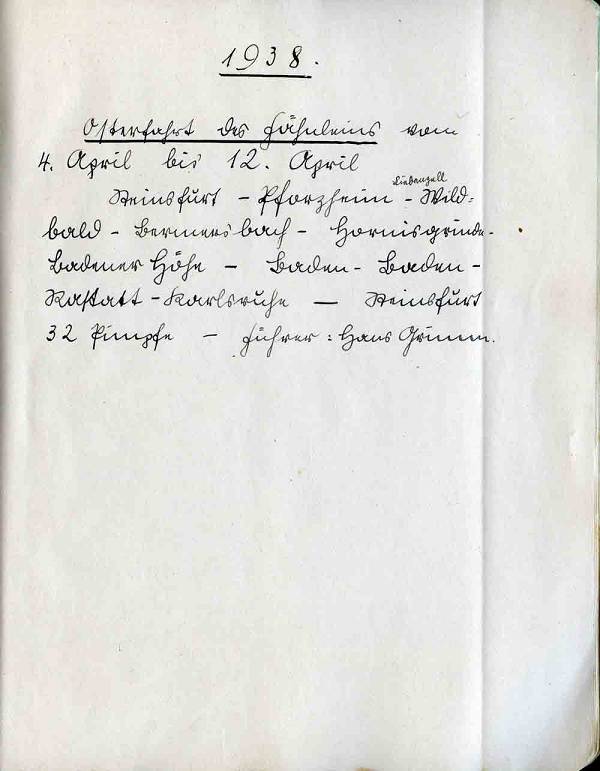 1938.
Osterfahrt des Fähnleins vom
4. April bis 12. April
Steinsfurt - Pforzheim - Liebenzell - Wild-
bald - Bermersbach - Hornisgrinde -
Badener Höhe - Baden-Baden -
Rastatt - Karlsruhe — Steinsfurt
32 Pimpfe — Führer: Hans Grimm.